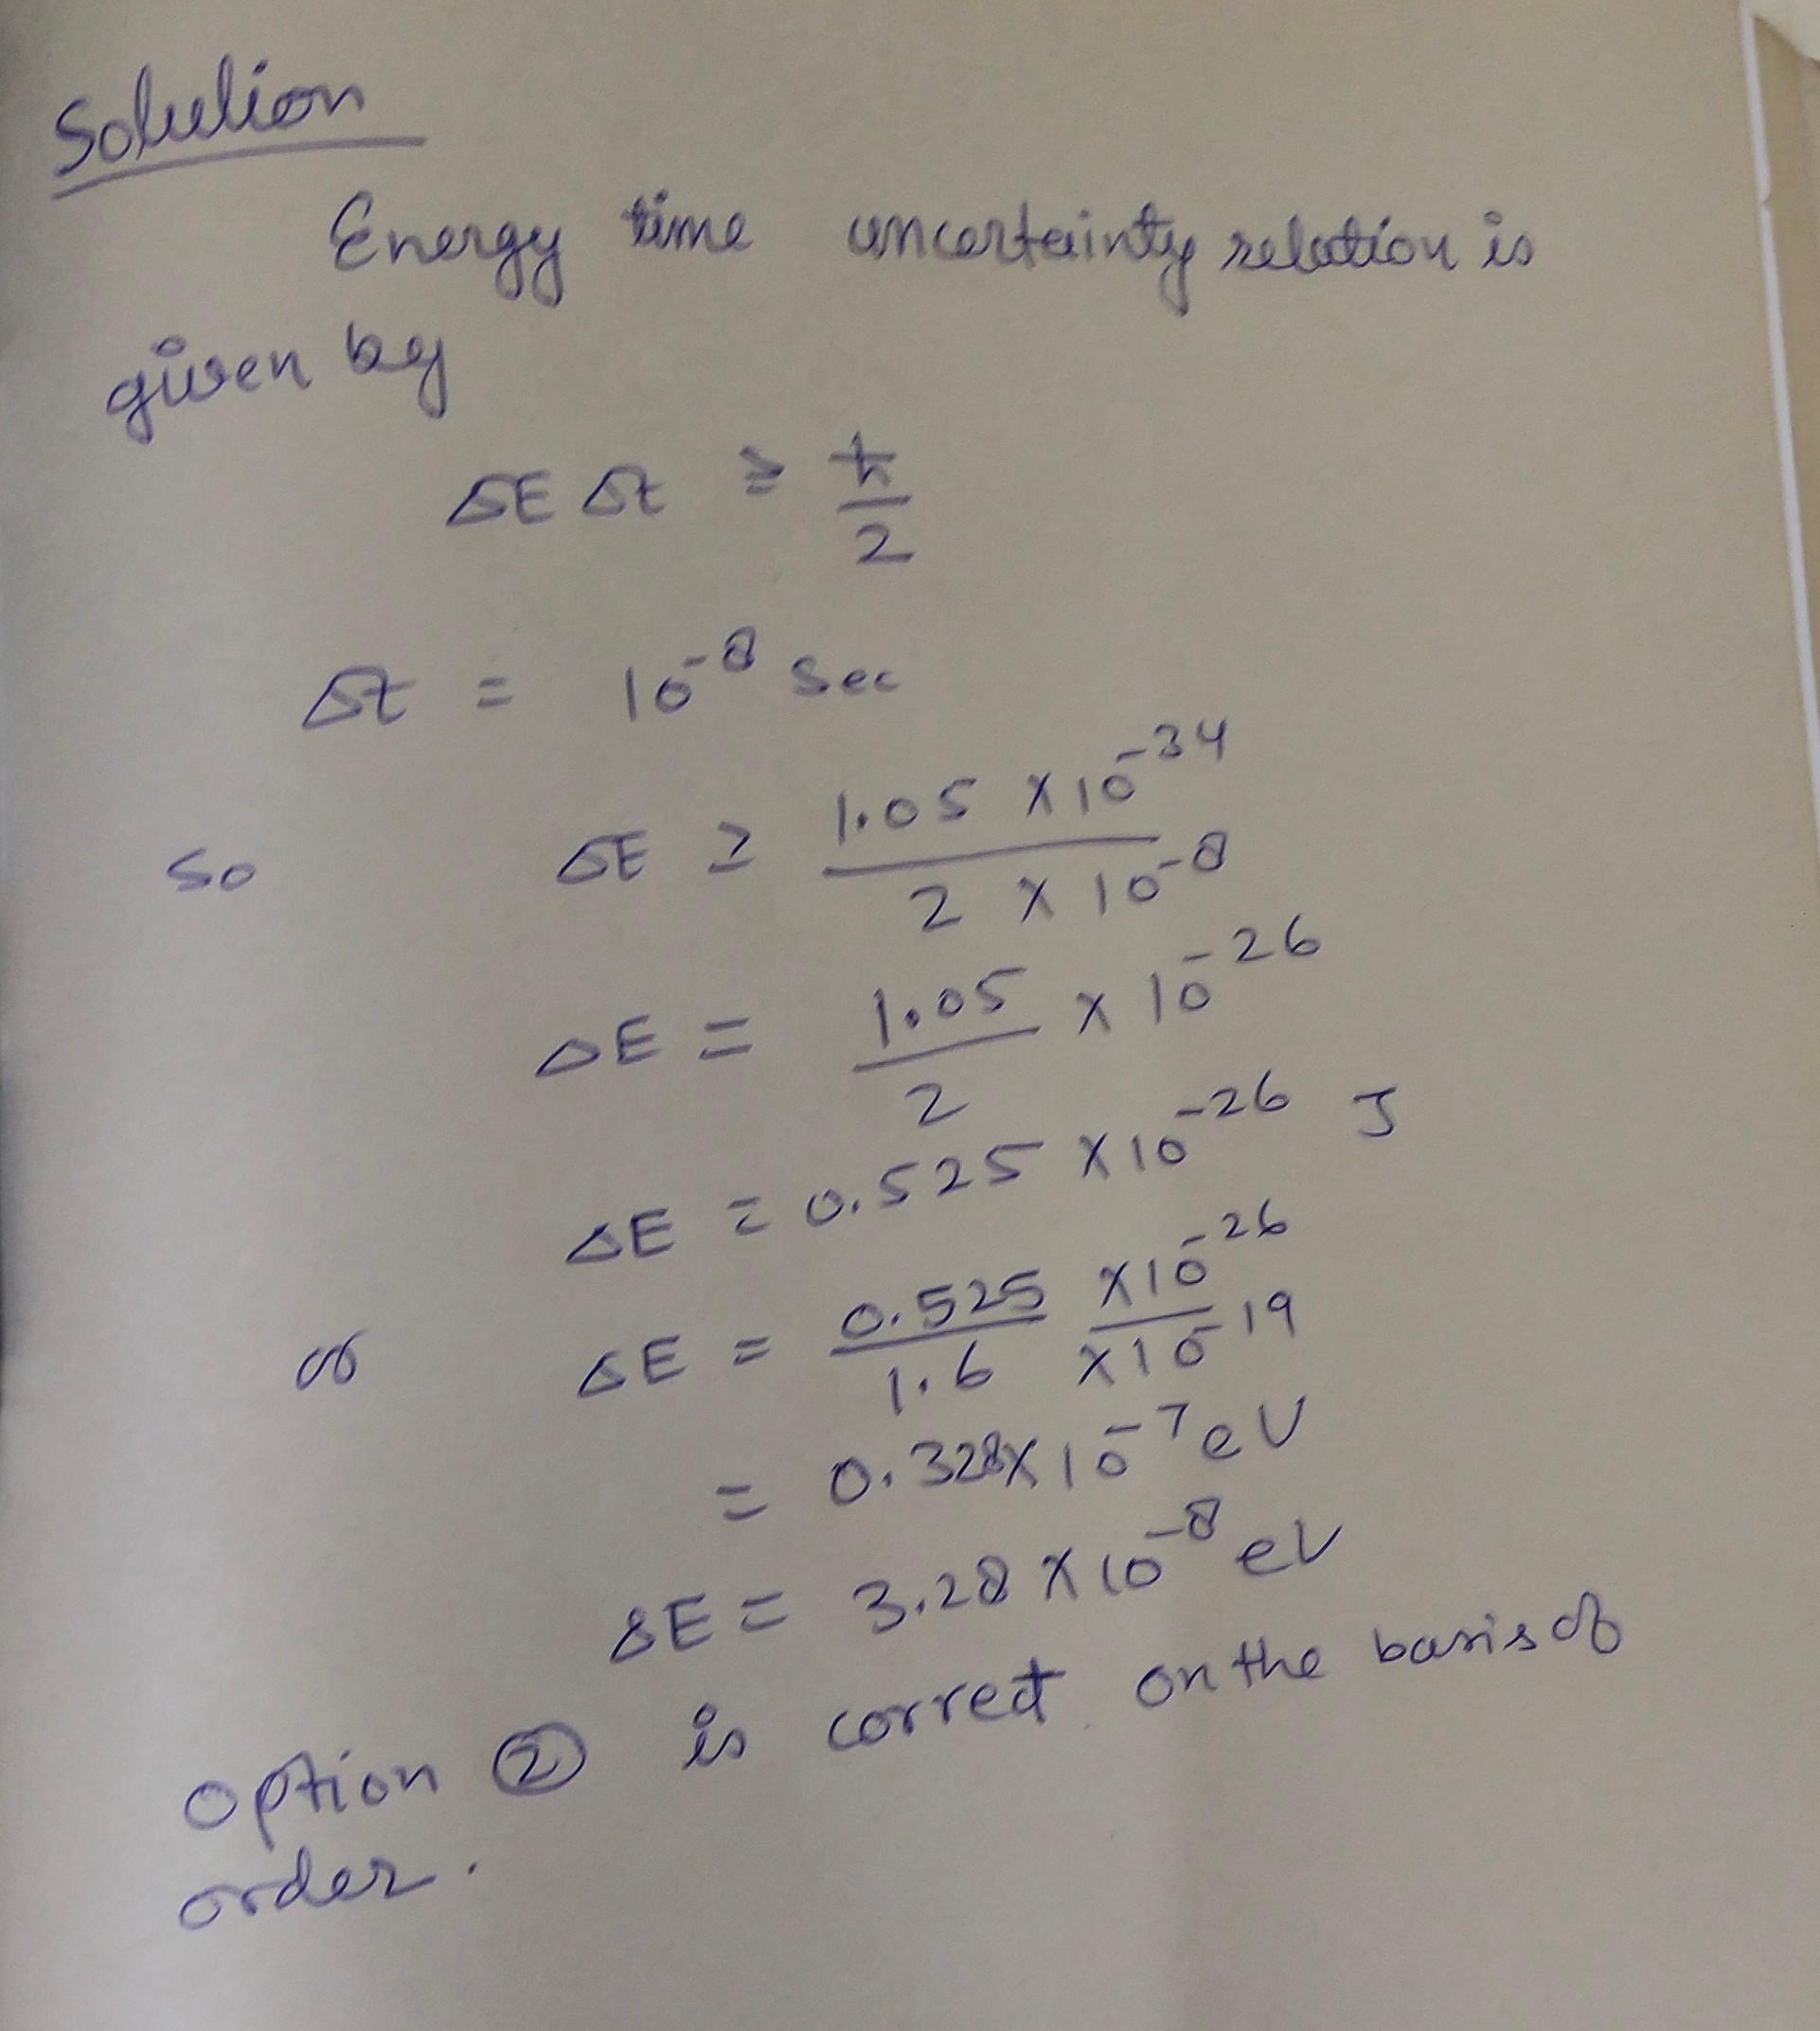 Solution
Energy time uncertainty relation is
given by
ΔE Δt ≥ ħ/2
Δt = 10^-8 Sec
So ΔE ≥ 1.05 × 10^-34 / 2 × 10^-8
ΔE = 1.05/2 × 10^-26
ΔE = 0.525 × 10^-26 J
or ΔE = 0.525 × 10^-26 / 1.6 × 10^-19
= 0.328 × 10^-7 eV
ΔE = 3.28 × 10^-8 eV
option ② is correct on the basis of
order.